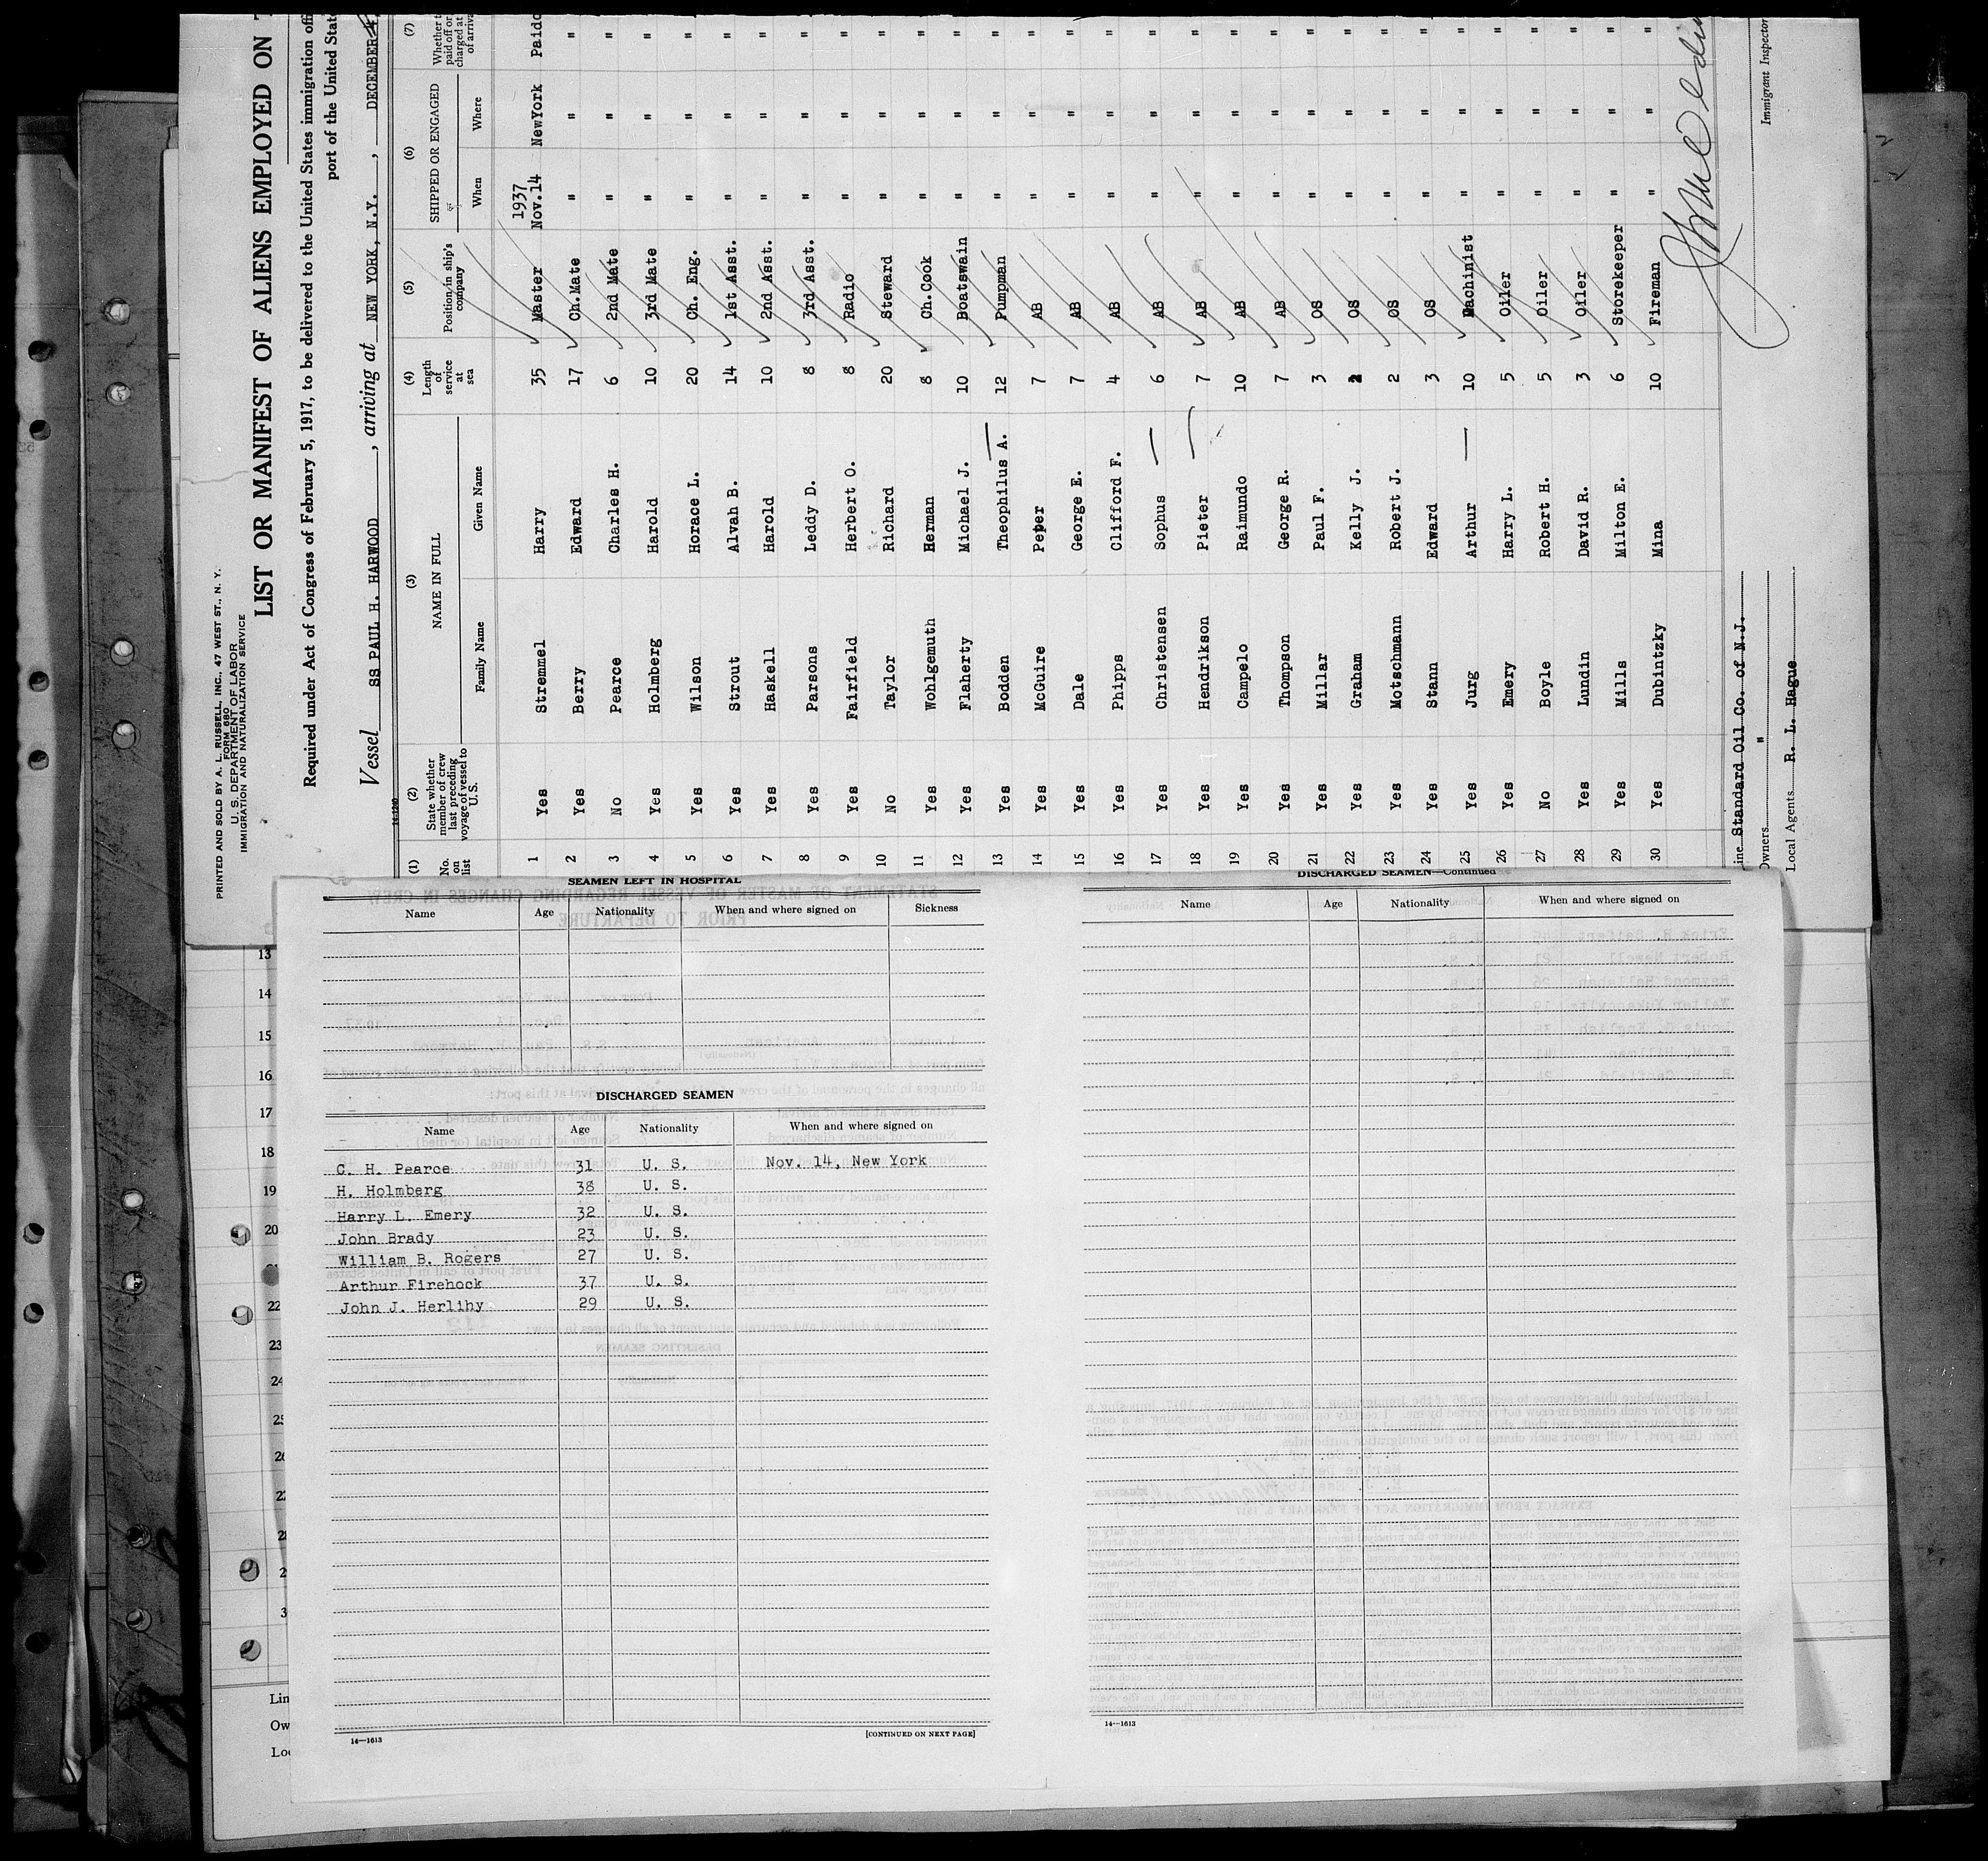 PRINTED AND SOLD BY A. L. RUSSELL, INC., 47 WEST ST., N. Y.
FORM 680
U. S. DEPARTMENT OF LABOR
IMMIGRATION AND NATURALIZATION SERVICE
LIST OR MANIFEST OF ALIENS EMPLOYED ON
Required under Act of Congress of February 5, 1917, to be delivered to the United States immigration
port of the United
Vessel SS PAUL H. HARWOOD, arriving at NEW YORK, N.Y., DECEMBER
(1) (2) (3) (4) (5) (6) (7)
No. on list State whether member of crew last preceding voyage of vessel to U. S. NAME IN FULL Length of service at sea Position in ship's company SHIPPED OR ENGAGED Whether
Family Name Given Name When Where
1937
1 Yes Stremmel Harry 35 Master Nov.14 NewYork Paid
2 Yes Berry Edward 17 Ch.Mate " " "
3 No Pearce Charles H. 6 2nd Mate " " "
4 Yes Holmberg Harold 10 3rd Mate " " "
5 Yes Wilson Horace L. 20 Ch. Eng. " " "
6 Yes Strout Alvah B. 14 1st Asst. " " "
7 Yes Haskell Harold 10 2nd Asst. " " "
8 Yes Parsons Leddy D. 8 3rd Asst. " " "
9 Yes Fairfield Herbert O. 8 Radio " " "
10 No Taylor Richard 20 Steward " " "
11 Yes Wohlgemuth Herman 8 Ch.Cook " " "
12 Yes Flaherty Michael J. 10 Boatswain " " "
13 Yes Bodden Theophilus A. 12 Pumpman " " "
14 Yes McGuire Peter 7 AB " " "
15 Yes Dale George E. 7 AB " " "
16 Yes Phipps Clifford F. 4 AB " " "
17 Yes Christensen Sophus 6 AB " " "
18 Yes Hendrikson Pieter 7 AB " " "
19 Yes Campelo Raimundo 10 AB " " "
20 Yes Thompson George R. 7 AB " " "
21 Yes Millar Paul F. 3 OS " " "
22 Yes Graham Kelly J. 2 OS " " "
23 Yes Motschmann Robert J. 2 OS " " "
24 Yes Stann Edward 3 OS " " "
25 Yes Jurg Arthur 10 Machinist " " "
26 Yes Emery Harry L. 5 Oiler " " "
27 No Boyle Robert H. 5 Oiler " " "
28 Yes Lundin David R. 3 Oiler " " "
29 Yes Mills Milton E. 6 Storekeeper " " "
30 Yes Dubintzky Mina 10 Fireman " " "
Standard Oil Co. of N.J.
Owners "
Local Agents R. L. Hague
Immigrant Inspector
SEAMEN LEFT IN HOSPITAL
Name Age Nationality When and where signed on Sickness
DISCHARGED SEAMEN
Name Age Nationality When and where signed on
C. H. Pearce 31 U. S. Nov. 14, New York
H. Holmberg 38 U. S.
Harry L. Emery 32 U. S.
John Brady 23 U. S.
William B. Rogers 27 U. S.
Arthur Firehock 37 U. S.
John J. Herlihy 29 U. S.
14—1613 [CONTINUED ON NEXT PAGE]
DISCHARGED SEAMEN—Continued
Name Age Nationality When and where signed on
14—1613
13
14
15
16
17
18
19
20
22
23
24